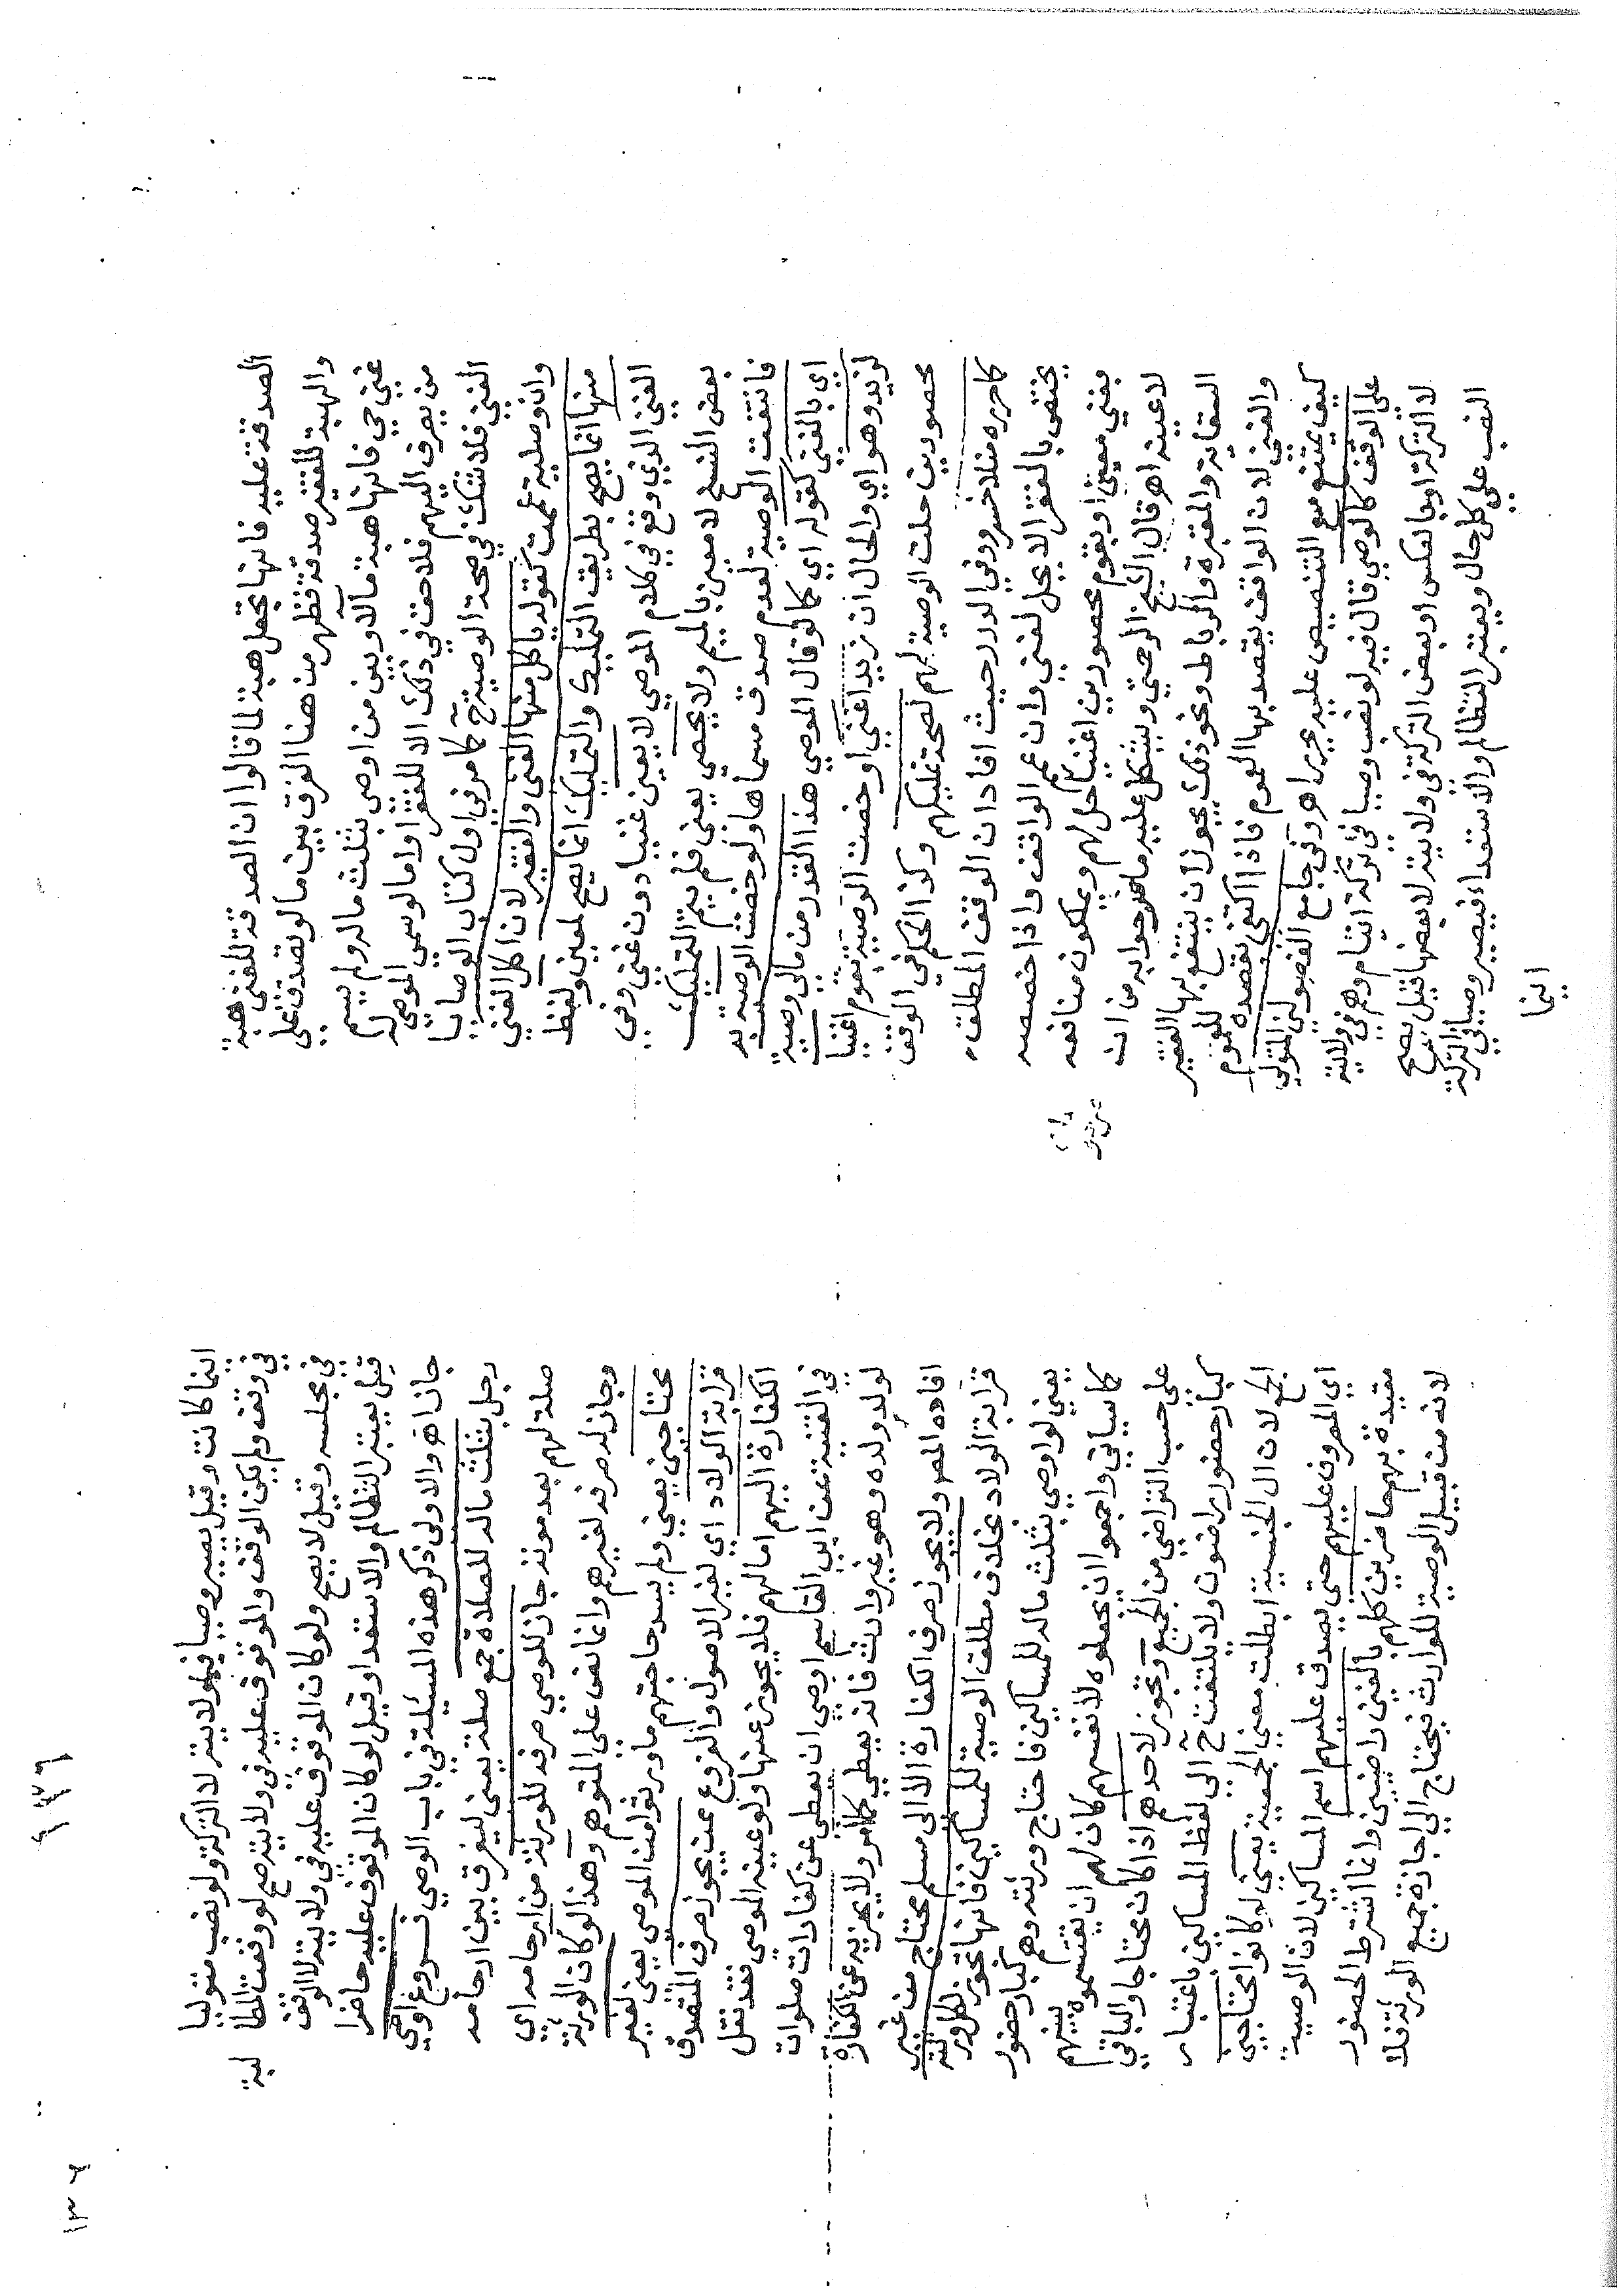 الصدقة عليه فانها تجعل هبة لما قالوا ان الصدقة للغني هبة
والهبة للفقير صدقة فظهر من هنا الفرق بين ما لو تصدق على
غني حي فانها هبة مآلا وبين من اوصى بثلث ماله ولم يسم
من يصرف اليهم فلا حق في ذلك الا للفقرا واما لو سمى الموصى له
الغني فلا شك في صحة الوصية ح كما مر في اول كتاب الوصايا
وان وصلية عمت كقوله ياكل منها الغني والفقير لان اكل الغني
منها انما يصح بطريق التمليك والتمليك انما يصح لمعين ولفظ
الغني الذي وقع في كلام الموصي لا يعين غنيا دون غني وفي
بعض النسخ لا معين بالميم ولا يحصي يعني فلم يتم التمليك
فانتفت الوصية لعدم صدق مسماها ولو خصت الوصية به
اي بالغني كقوله اي كما لو قال الموصي هذا القدر من مالي وصية
لزيد وهو اي والحال ان زيدا غني او خصت الوصية بقوم اغنيا
محصورين حلت الوصية لهم لصحة تمليكهم وكذا الحكم في الوقف
كما حرره منلا خسرو في الدرر حيث افاد ان الوقف المطلق
يختص بالفقرا لا يحل لغني وان عم الواقف واذا خصصه
بغني معين او بقوم محصورين اغنيا حل لهم ويملكون منافعه
لا عينه اهـ قال الشيخ الرحمتي ويشكل عليه ما جوابه من ان
السقاية والمقبرة والرباط ونحو ذلك يجوز ان ينتفع بها الفقير
والغني لان الواقف يقصد بها العموم فاذا اكتفى بقصده للعموم
كيف يمتنع مع التنصيص عليه يحرر اهـ وفي جامع الفصولين المتولي
على الوقف كالوصي قال فيه لو نصب وصيا في تركة ايتام وهم في ولايته
لا التركة او بالعكس او بعض التركة في ولايته لا بعضها قيل يصح
النصب على كل حال ويعتبر التظالم والاستعداء فيصير وصيا في التركة
اينما
اينما كانت وقيل يصير وصيا فيما ولايته لا التركة ولو نصب متوليا
في وقف ولم يكن الوقف والموقوف عليه في ولايته صح لو وقعت المطالبة
في مجلسه وقيل لا يصح ولو كان الموقوف عليه في ولايته لا الوقف
قيل يعتبر التظالم والاستعداء وقيل لو كان الموقوف عليه حاضرا
جاز اهـ والاولى ذكر هذه المسئلة في باب الوصي فروع اوصى
رجل بثلث ماله للصلاة جمع صلة يعني ليفرق بين ارحامه
صلة لهم بعد موته جاز للوصي صرفه للورثة من ارحامه اي
وجاز له صرفه لغيرهم وانما نص على المتوهم وهذا لو كان الورثة
محتاجين يعني ولم يسد حاجتهم ما ورثوا من الموصي يعني لغير
قرابة الولاد اي لغير الاصول والفروع ممن يجوز صرف المتصدق
الكفارة اليهم اما لهم فلا يجوز عنها ولو عينه الموصي فقد نقل
في القنية عن ابي القاسم اوصى ان يعطى عن كفارات صلوات
لولد ولده وهو غير وارث فانه يعطي كما امر ولا يجزيه عن الكفارة
افاده المصـ ولا يجوز صرف الكفارة الا الى مسلم محتاج من غير
قرابة الولاد بخلاف مطلق الوصية للمساكين فانها تجوز لكل ورثته
يعني لو اوصى بثلث ماله للمساكين فاحتاج ورثته وهم كبار حضور
كما سياتي واجمعوا ان يجعلوه لانفسهم كان لهم ان يقتسموه بينهم
على حسب التراضي من الجميع وتجوز لاحدهم اذا كان محتاجا والباقي
كبار حضور راضون ولا يلتفت ح الى لفظ المساكين باعتبار
الجمع لان ال الجنسية ابطلت معنى الجمعية يعني لو كانوا محتاجين
اي المصروف عليهم حتى يصدق عليهم اسم المساكين لان الوصية
مقيدة بهم حاضرين كلهم بالغين راضين وانما اشترط الحضور
لانه من قبيل الوصية للوارث فيحتاج الى اجازة جميع الورثة فلا
١٣٦